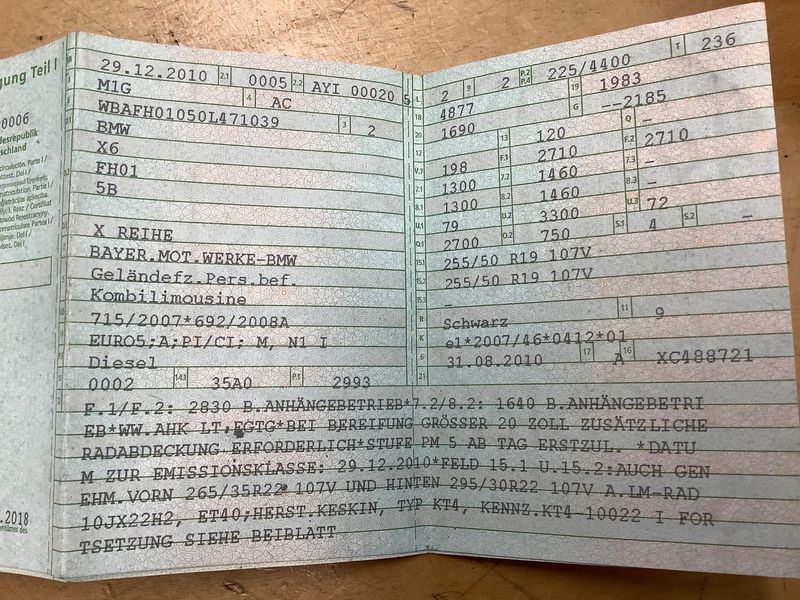 gung Teil I
0006
desrepublik
schland
.2018
29.12.2010 2.1 0005 2.2 AYI 00020 5
M1G 4 AC
WBAFH01050L471039 3 2
BMW
X6
FH01
5B
X REIHE
BAYER.MOT.WERKE-BMW
Geländefz.Pers.bef.
Kombilimousine
715/2007*692/2008A
EURO5;A;PI/CI; M, N1 I
Diesel
0002 14.1 35A0 P.1 2993
L 2 9 2 P.2 P.4 225/4400 T 236
18 4877 19 1983
20 1690 G --2185
12 - 13 120 Q -
V.7 198 F.1 2710 F.2 2710
7.1 1300 7.2 1460 7.3 -
8.1 1300 8.2 1460 8.3 -
U.1 79 U.2 3300 U.3 72
O.1 2700 O.2 750 S.1 4 S.2 -
15.1 255/50 R19 107V
15.2 255/50 R19 107V
15.3 -
R Schwarz 11 9
K e1*2007/46*0412*01
6 31.08.2010 17 A 16 XC488721
21
F.1/F.2: 2830 B.ANHÄNGEBETRIEB*7.2/8.2: 1640 B.ANHÄNGEBETRI
EB*WW.AHK LT.EGTG*BEI BEREIFUNG GRÖSSER 20 ZOLL ZUSÄTZLICHE
RADABDECKUNG ERFORDERLICH*STUFE PM 5 AB TAG ERSTZUL. *DATU
M ZUR EMISSIONSKLASSE: 29.12.2010*FELD 15.1 U.15.2:AUCH GEN
EHM.VORN 265/35R22 107V UND HINTEN 295/30R22 107V A.LM-RAD
10JX22H2, ET40;HERST.KESKIN, TYP KT4, KENNZ.KT4 10022 I FOR
TSETZUNG SIEHE BEIBLATT